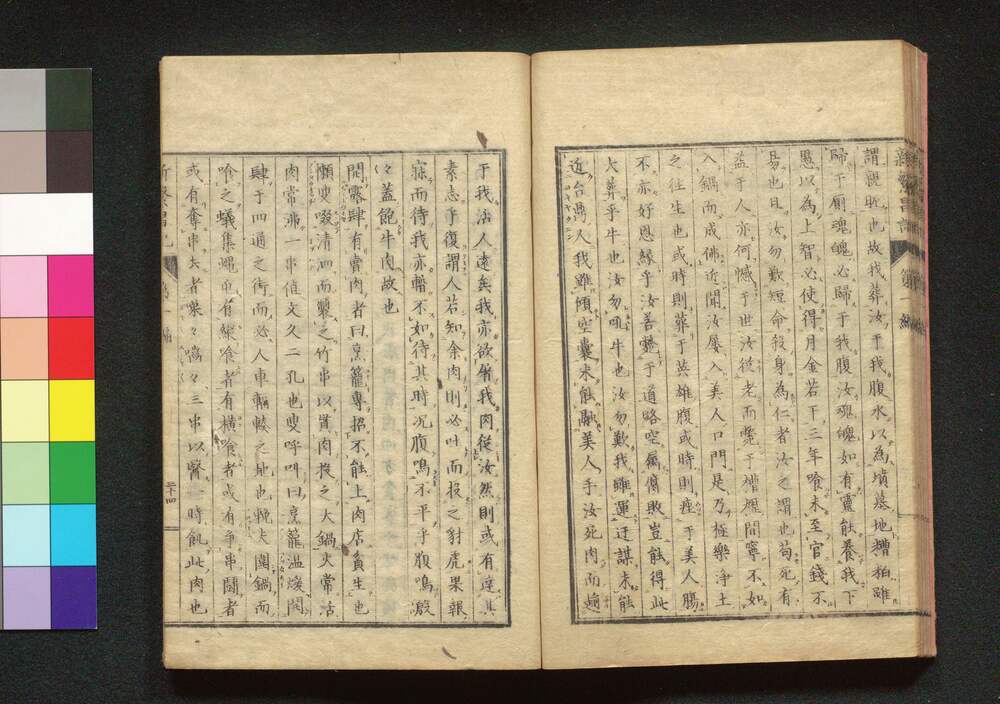 謂親昵也故我葬汝于我腹水以為墳墓地糟粕雖
歸于廁魂魄必歸于我腹汝魂魄如有靈能養我下
愚以為上智必使得月金若干三年喰未至官錢不
易也且汝勿歎短命殺身為仁者汝之謂也苟死有
益于人亦何憾于世汝從老而斃于槽櫪間寧不如
入鍋而成佛近聞汝屢入美人口門是乃極樂淨土
之往生也或時則葬于英雄腹或時則痙于美人腸
不亦好恩緣乎汝善斃于道路空屬腐敗豈能得此
大葬乎牛也汝勿吼牛也汝勿歎我雖運迂謀未能
近台鼎人我雖傾空囊未能融美人手汝死肉而遄
于我法人遠矣我亦欲屑我肉從汝然則或有達其
素志乎復謂人若知余肉則必吐而投之豺虎果報
寐而待我亦暗不如待其時況腹鳴不平乎腹鳴殷
々蓋飽牛肉故也
閣露肆有賣肉者曰烹籠專招不能上肉店貧生也
懶叟啜清洟而製之竹串以貫肉投之大鍋火常活
肉常沸一串值文久二孔也叟呼叫曰烹籠溫燠閣
肆于四通之街而必人車輻輳之地也輓夫圍鍋而
喰之蟻集蠅屯有縱喰者有橫喰者或有爭串鬪者
或有奪串去者衆々喦々三串以醫一時飢此肉也
二十四